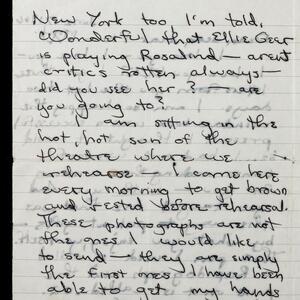 New York too I'm told.
Wonderful that Ellie Geer
is playing Rosalind — arent
critics rotten always —
did you see her? — are
you going to?
I am sitting in the
hot, hot sun of the
theatre where we
rehearse — I came here
every morning to get brown
and rested before rehearsal.
These photographs are not
the ones I would like
to send — they are simply
the first ones I have been
able to get my hands